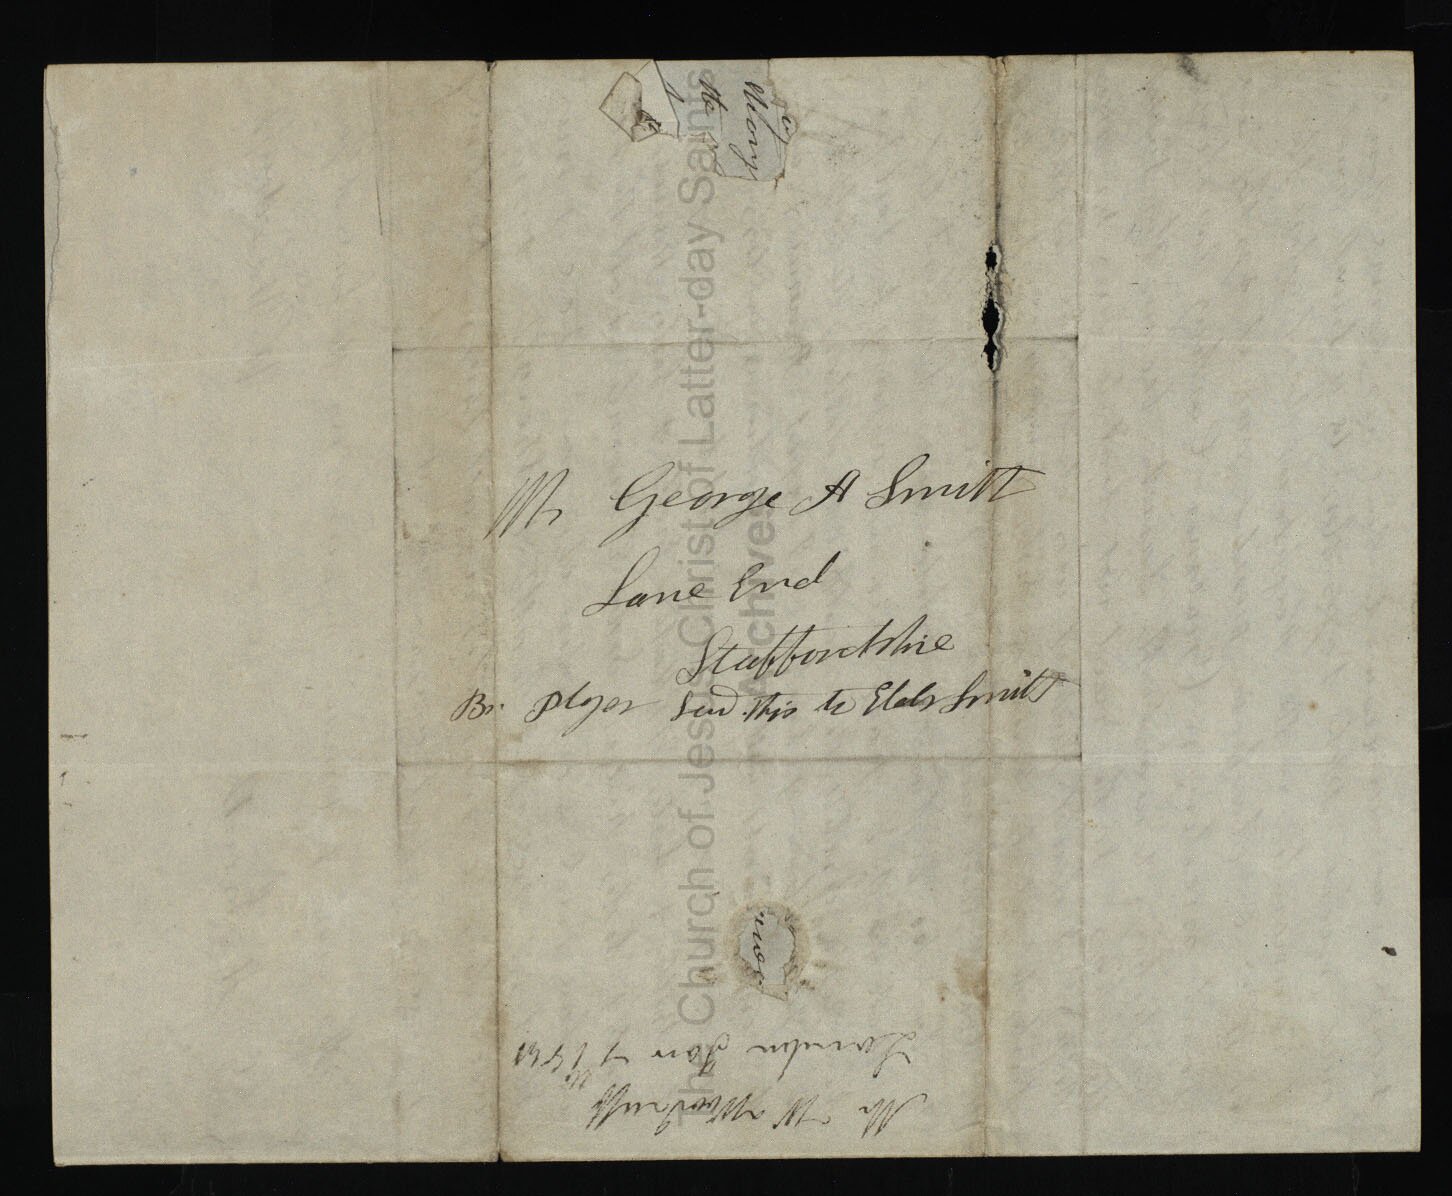 Mr George A Smith
Lane End
Staffordshire
Br. Player Send this to Elder Smith
Mr W Woodruff
London Jan 7 1841
The Church of Jesus Christ of Latter-day Saints
Archives